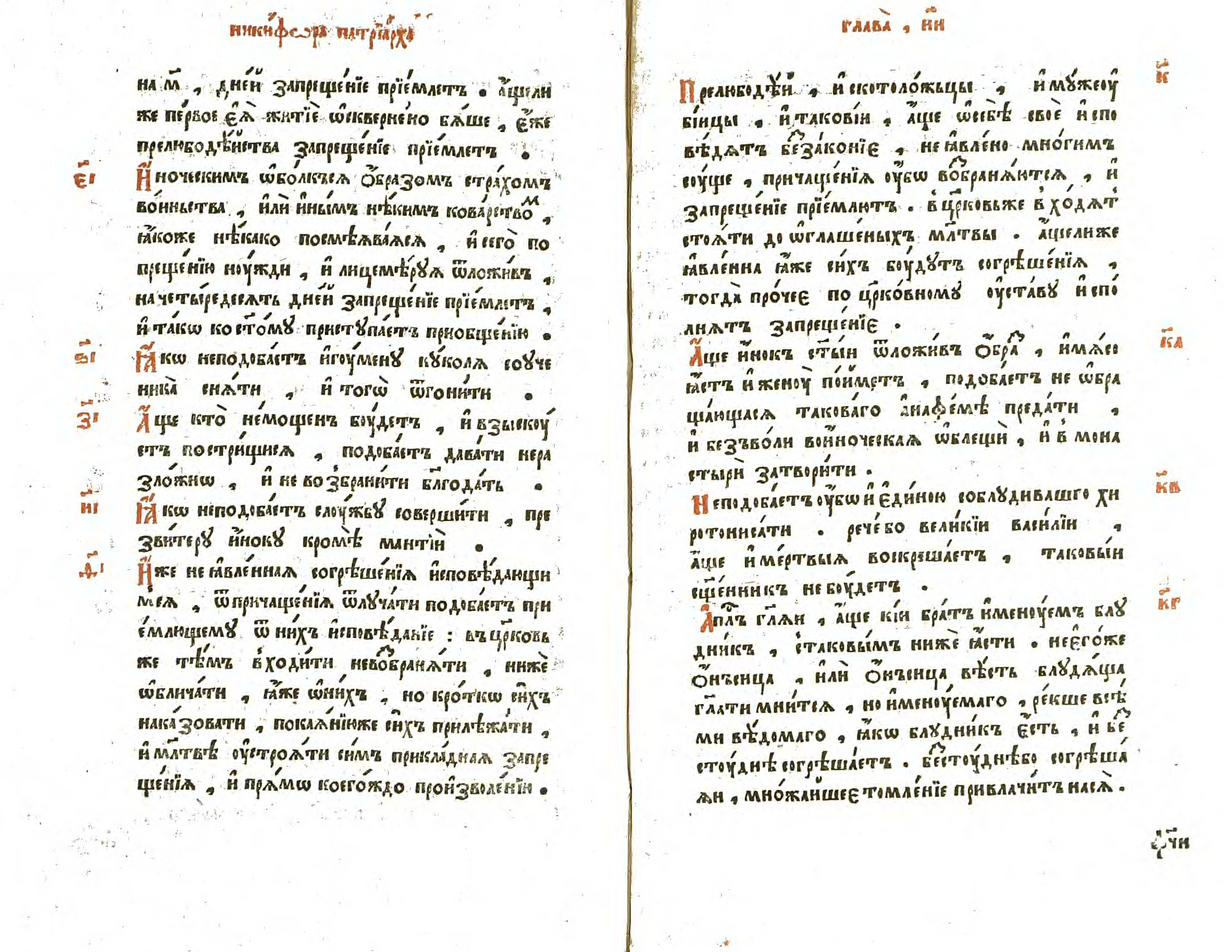 никифѡра патрїа́рха
на м҃ , дне́й запреще́нїе прїе́млетъ . а҆́щели
же пе́рвое є҆ѧ̀ житїѐ ѡ҆скверне́но бѧ́ше , є҆́же
прелюбодѣ́йства запреще́нїе прїе́млетъ .
є҃і
И҆́ноческимъ ѡ҆бо́лкъсѧ ѻ҆́бразомъ стра́хомъ
во́иньства , и҆лѝ и҆ны́мъ нѣ́кимъ кова́рство м ,
ꙗ҆́коже нѣ́како посмѣѧва́ѧсѧ , и҆ сего̀ по
преще́нїю ноу́жди , и҆ лицемѣ́руѧ ѿложи́въ ,
на четы́редесѧть дне́й запреще́нїе прїе́млетъ ,
и҆ та́кѡ ко ст҃о́му приступа́етъ приѡбще́нїю .
ѕ҃і
Ꙗ҆́кѡ неподоба́етъ и҆гоу́мену ку́колѧ соуче
ника̀ снѧ́ти , и҆ того̀ ѿгони́ти .
з҃і
А҆́ще кто̀ не́мощенъ бꙋ́детъ , и҆ взыскоу́
етъ постри́щисѧ , подоба́етъ дава́ти нера
зло́жнѡ , и҆ не возбрани́ти блг҃ода́ть .
и҃і
Ꙗ҆́кѡ неподоба́етъ слоу́жбꙋ соверши́ти , пре
зви́теру и҆́ноку кромѣ̀ манті́и .
ѳ҃і
И҆́же не ꙗ҆вле́ннаѧ согрѣше́нїѧ и҆сповѣ́дающи
мсѧ , ѿ причаще́нїѧ ѿлуча́ти подоба́етъ при
е́млющему ѿ ни́хъ и҆сповѣ́данїе : въ цр҃ковь
же тѣ́мъ входи́ти невозбранѧ́ти , нижѐ
ѡ҆блича́ти , ꙗ҆́же ѡ҆ ни́хъ , но кро́ткѡ си́хъ
нака́зовати , покаѧ́нїюже си́хъ прилѣжа́ти ,
и҆ мл҃твѣ оу҆строѧ́ти си́мъ прикла́днаѧ запре
ще́нїѧ , и҆ прѧ́мѡ коего́ждо произволе́нїю .
глава̀ , к҃и
к҃
Прелюбодѣ́и , и҆ скотоло́жьцы , и҆ мꙋ́жеоу
бі́ицы , и҆ такові́и , а҆́ще ѡ҆ себѣ̀ своѐ и҆спо
вѣ́дѧтъ беззако́нїе , не ꙗ҆вле́но мно́гимъ
соу́ще , причаще́нїѧ оу҆́бѡ возбранѧ́ютсѧ , и҆
запреще́нїе прїе́млютъ . в цр҃ковьже вхо́дѧт
стоѧ́ти до ѡ҆глаше́ныхъ мл҃твы . а҆́щелиже
ꙗ҆вле́нна ꙗ҆́же си́хъ боу́дутъ согрѣше́нїѧ ,
тогда̀ про́чее по цр҃ко́вному оу҆ста́ву и҆спо
лнѧ́тъ запреще́нїе .
к҃а
А҆́ще и҆́нокъ ст҃ы́и ѿложи́в ѻ҆́бра з , и҆ мѧ́со
ꙗ҆́стъ и҆ женоу̀ по́йметъ , подоба́етъ не ѡ҆бра
ща́ющасѧ такова́го а҆на́ѳемѣ преда́ти ,
и҆ безъво́ли во и҆́ноческаѧ ѡ҆блещѝ , и҆ в мона
стырѝ затвори́ти .
к҃в
Неподоба́етъ оу҆́бѡ и҆ є҆ди́ною соблуди́вшаго хи
ротониса́ти . рече́ бо вели́кїи васи́лїи ,
а҆́ще и҆ ме́ртвыѧ воскреша́етъ , таковы́и
сщ҃е́нникъ не боу́детъ .
к҃г
А҆пл҃ъ гл҃ѧи , а҆́ще кі́и бра́тъ и҆менꙋ́емъ блꙋ
дни́къ , с такоты́мъ нижѐ ꙗ҆́сти . не є҆го́же
ѻ҆́нъсица , и҆лѝ ѻ҆́нъсица вѣ́сть блудѧ́ща
гл҃ати мни́тсѧ , но и҆менꙋ́емаго , ре́кше всѣ́
ми вѣ́домаго , ꙗ҆́кѡ блудни́къ є҆́сть , и҆ бе з
стоу́днѣ согрѣша́етъ . безстоу́днѣбо согрѣша
ѧ́и , мно́жайшее томле́нїе привлачи́тъ на сѧ̀ .
ф҃чи